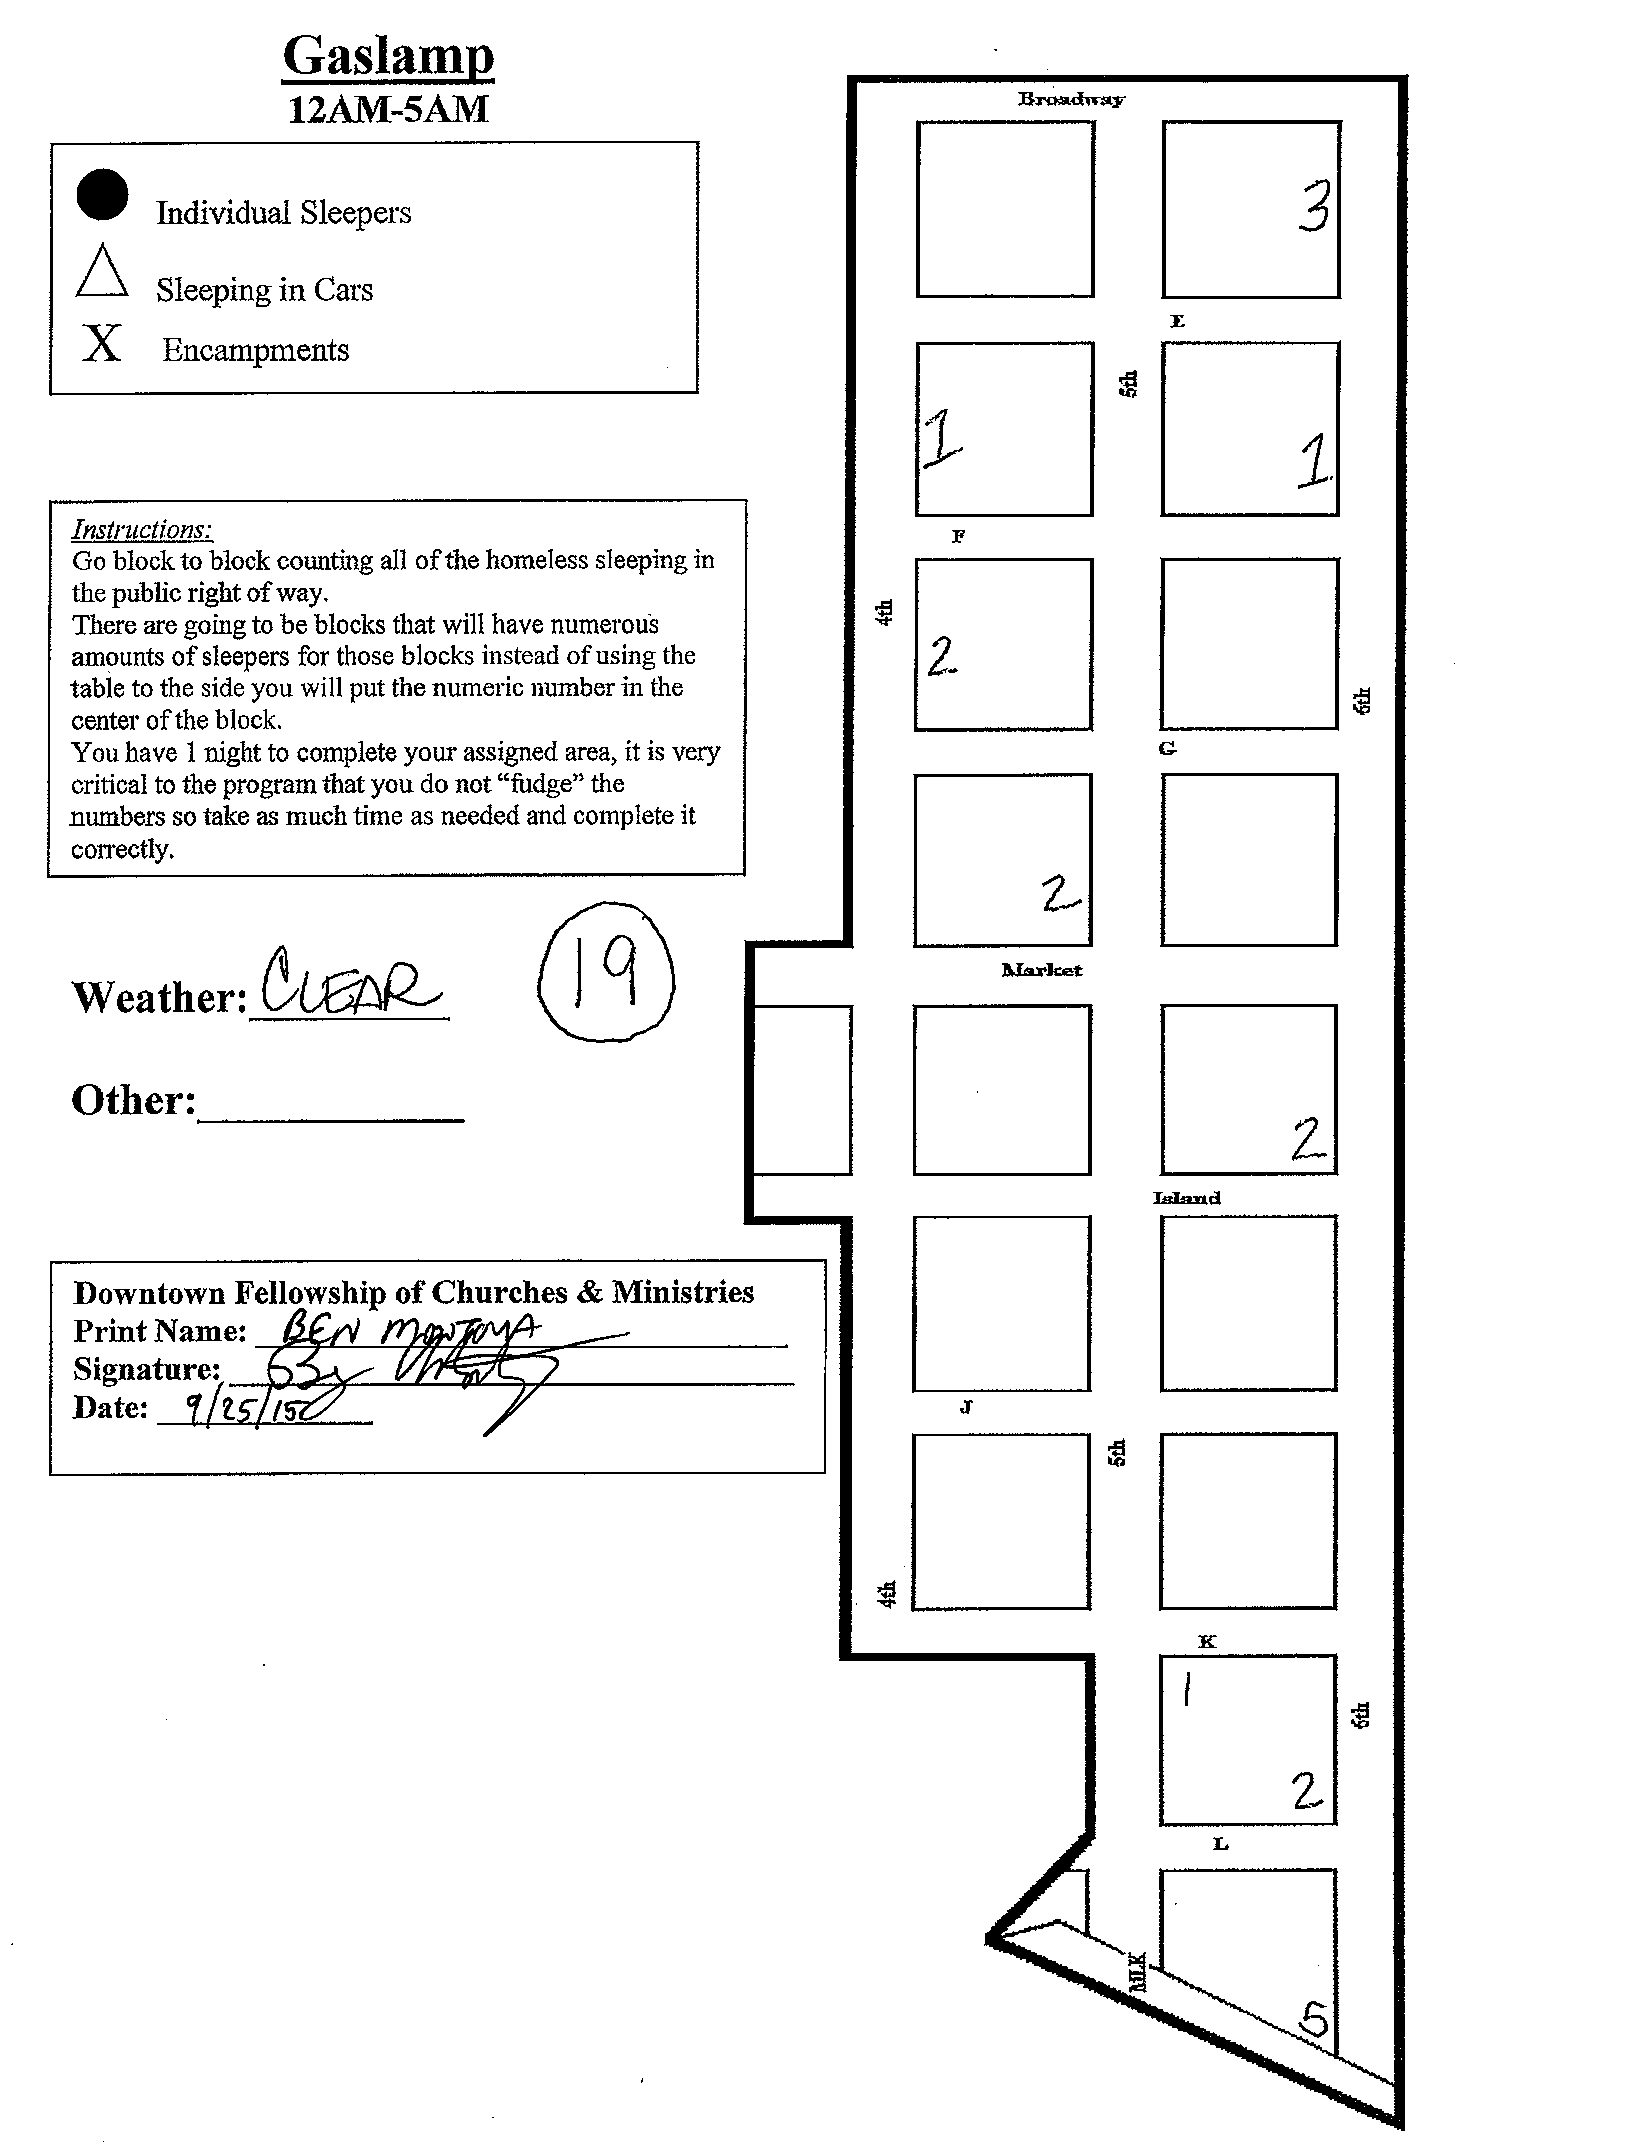 Gaslamp
12AM-5AM
Individual Sleepers
Sleeping in Cars
X Encampments
Instructions:
Go block to block counting all of the homeless sleeping in
the public right of way.
There are going to be blocks that will have numerous
amounts of sleepers for those blocks instead of using the
table to the side you will put the numeric number in the
center of the block.
You have 1 night to complete your assigned area, it is very
critical to the program that you do not “fudge” the
numbers so take as much time as needed and complete it
correctly.
Weather: CLEAR
19
Other:
Downtown Fellowship of Churches & Ministries
Print Name: BEN MONTOYA
Signature:
Date: 9/25/15
Broadway
3
E
5th
1
1
F
4th
2
6th
G
2
Market
2
Island
J
5th
4th
K
1
6th
2
L
MLK
5